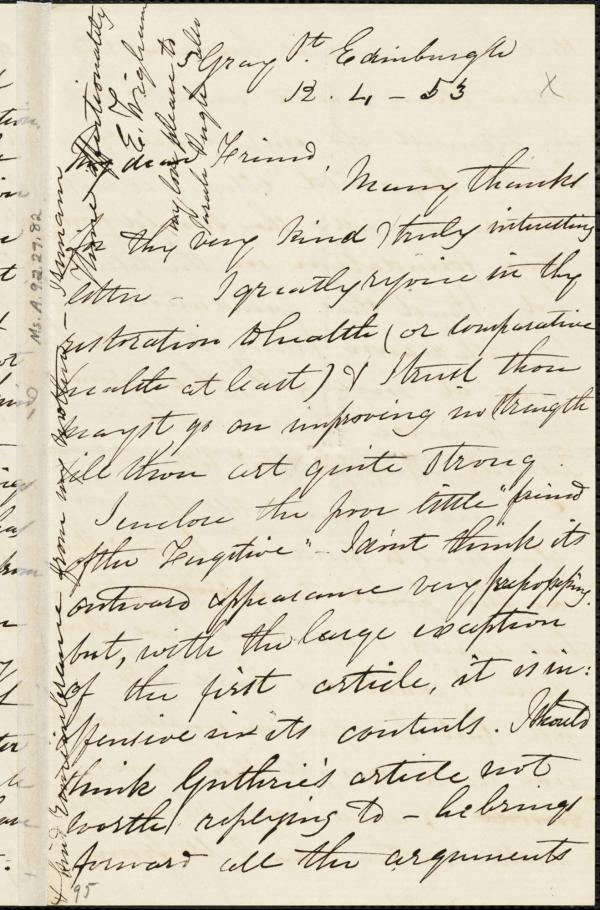 5 Gray St. Edinburgh
12. 4 - 53
My dear Friend,
Many thanks
for thy very kind & truly interesting
letter - I greatly rejoice in thy
restoration to health (or comparative
health at least) & I trust thou
mayst go on improving in strength
till thou art quite strong.
I enclose the poor little "friend
of the Fugitive" - I don't think its
outward appearance very prepossessing.
but, with the large exception
of the first article, it is in:
offensive in its contents. I should
think Guthrie's article not
worth replying to - he brings
forward all the arguments
& kind remembrance from my mother - I remain
Thine affectionately
E. Wigham
my love please to
Sarah Pugh
Ms. A. 9.2.27.82
95